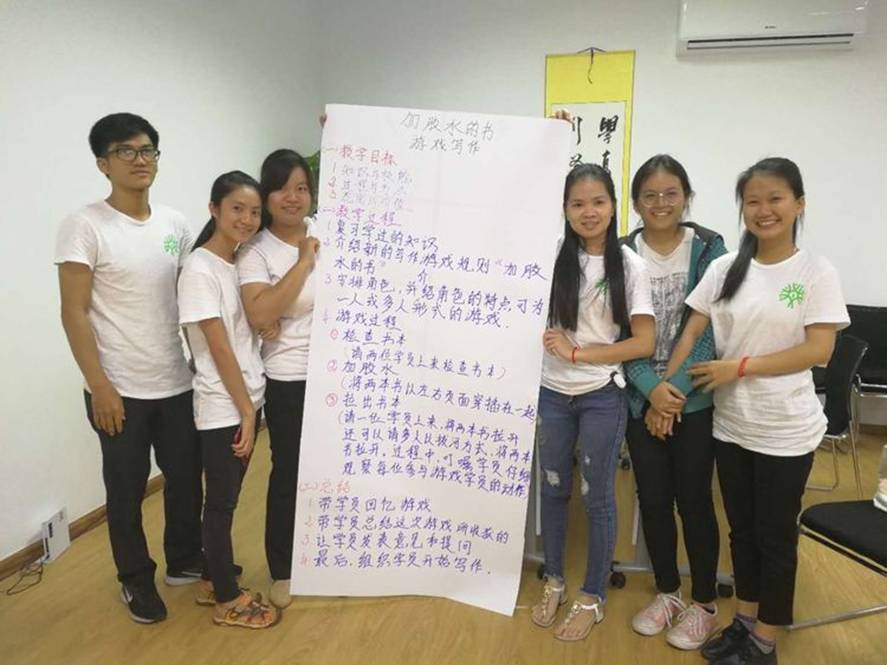 加胶水的书
游戏写作
一教学目标
1 知识与技能
2 过程与方法
3
一教学过程
1 复习学过的知识
2 介绍新的写作游戏规则“加胶
水的书”
介
3 安排角色,并络角色的特点可为
一人或多人形式的游戏.
4 游戏过程
① 检查书本
(请两位学员上来检查书本)
② 加胶水
(将两本书以左右页面穿插在一起
③ 拉出书本
(请一位学员上来,将两本书拉开
还可以请多人以拔河方式,将两本
书拉开。过程中,叮嘱学员仔细
观察每位参与游戏学员的动作)
(三)总结
1 带学员回忆游戏
2 带学员总结这次游戏所收获的
3 让学员发表意见和提问
4 最后,组织学员开始写作.
學